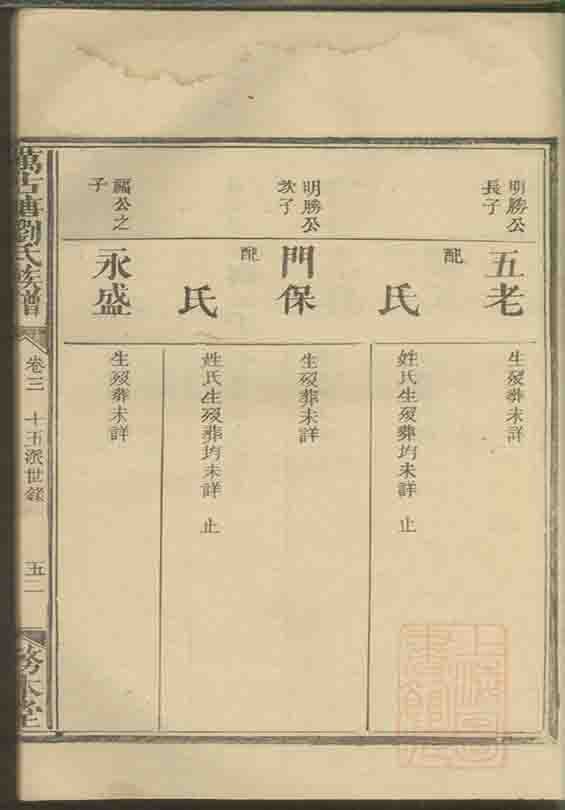 明勝公
長子
五老
生殁葬未詳
配
氏
姓氏生殁葬均未詳 止
明勝公
次子
門保
生殁葬未詳
配
氏
姓氏生殁葬均未詳 止
福公之
子
永盛
生殁葬未詳
萬古塘劉氏族譜
卷三 十五派世錄 五二
務本堂
上海圖書館藏